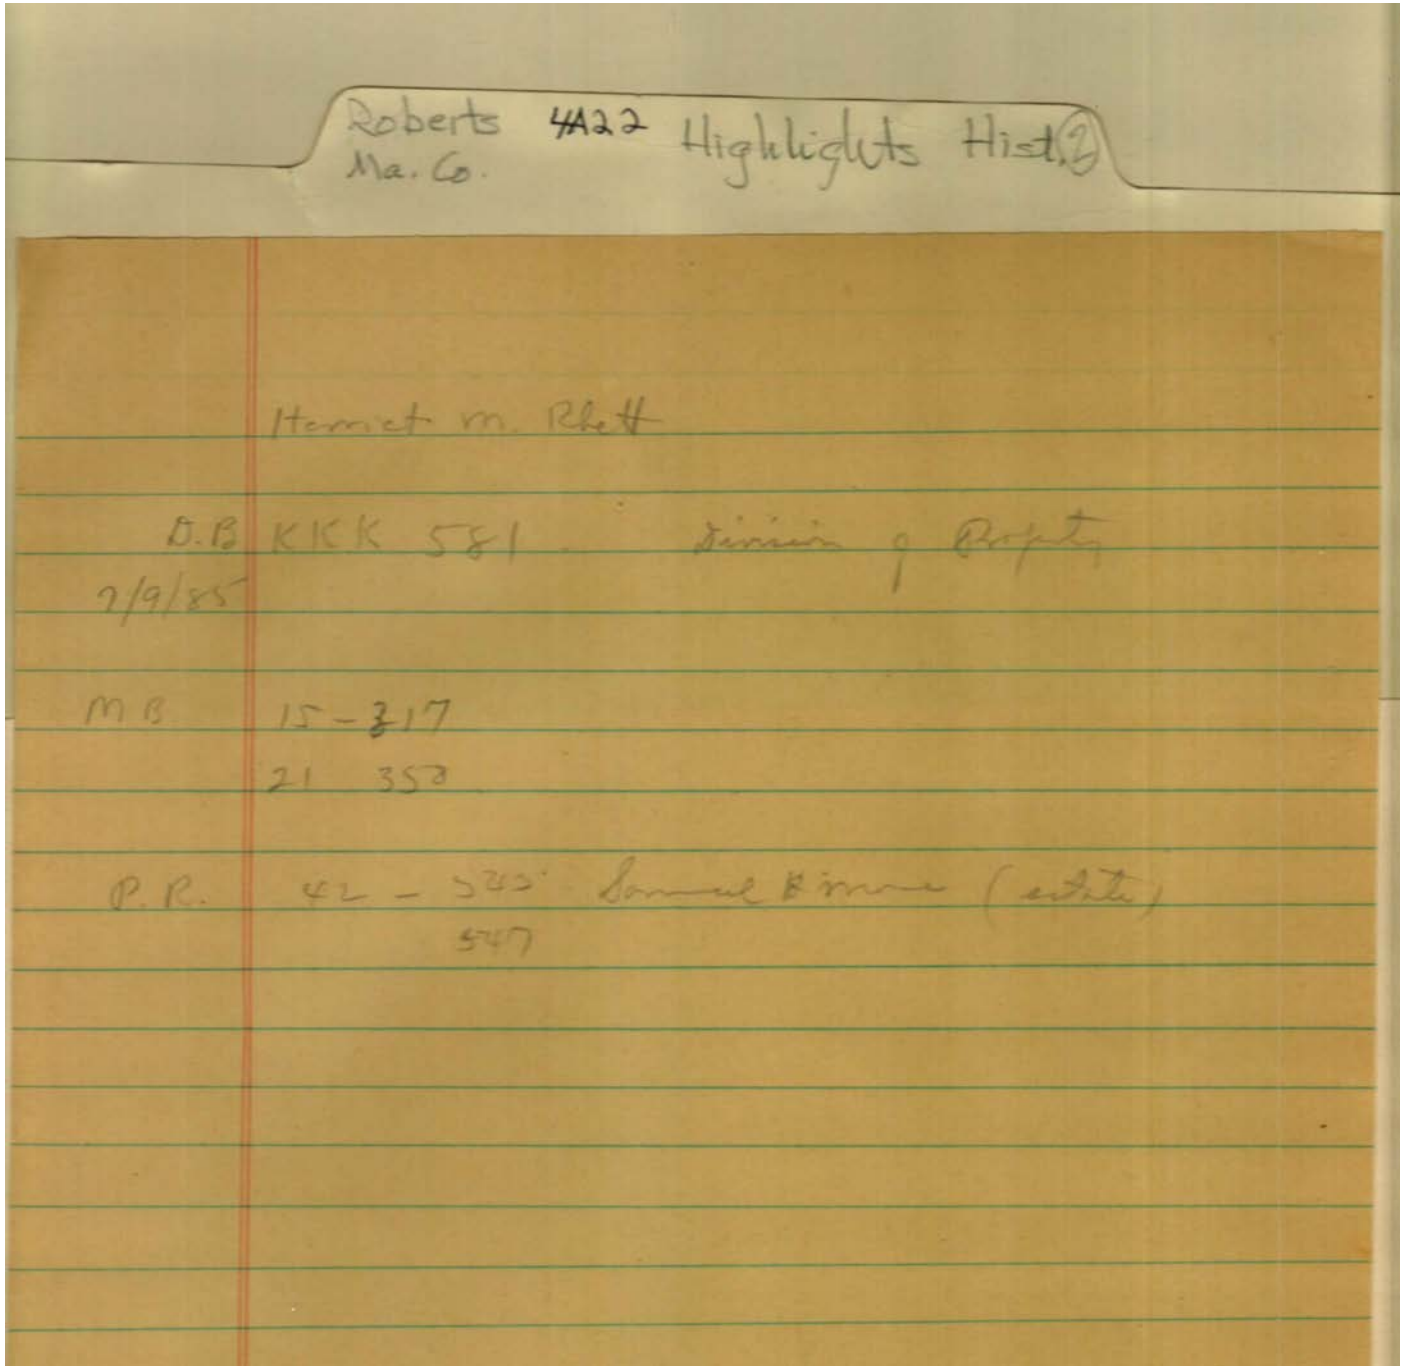 Roberts 4A22 Highlights Hist. 2
Ma. Co.
Harriet M. Rhett
D.B KKK 581 Division of Property
2/9/85
MB 15-317
21 358
P.R. 42 - 545 Samuel (estate)
547